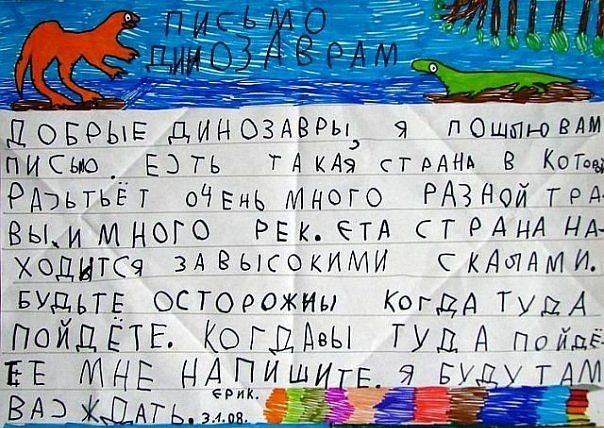 ПИСЬМО
ДИНОЗАВРАМ
ДОБРЫЕ ДИНОЗАВРЫ, Я ПОШЛЮ ВАМ
ПИСЬМО. ЕСТЬ ТАКАЯ СТРАНА В КОТОРО
РАСТЬТЁТ ОЧЕНЬ МНОГО РАЗНОЙ ТРА-
ВЫ, И МНОГО РЕК. ЄТА СТРАНА НА-
ХОДИТСЯ ЗА ВЫСОКИМИ СКАЛАМИ.
БУДЬТЕ ОСТОРОЖНЫ КОГДА ТУДА
ПОЙДЁТЕ. КОГДАВЫ ТУДА ПОЙДЁ-
ТЕ МНЕ НАПИШИТЕ. Я БУДУ ТАМ
ВАС ЖДАТЬ. ЄРИК. 3.1.08.